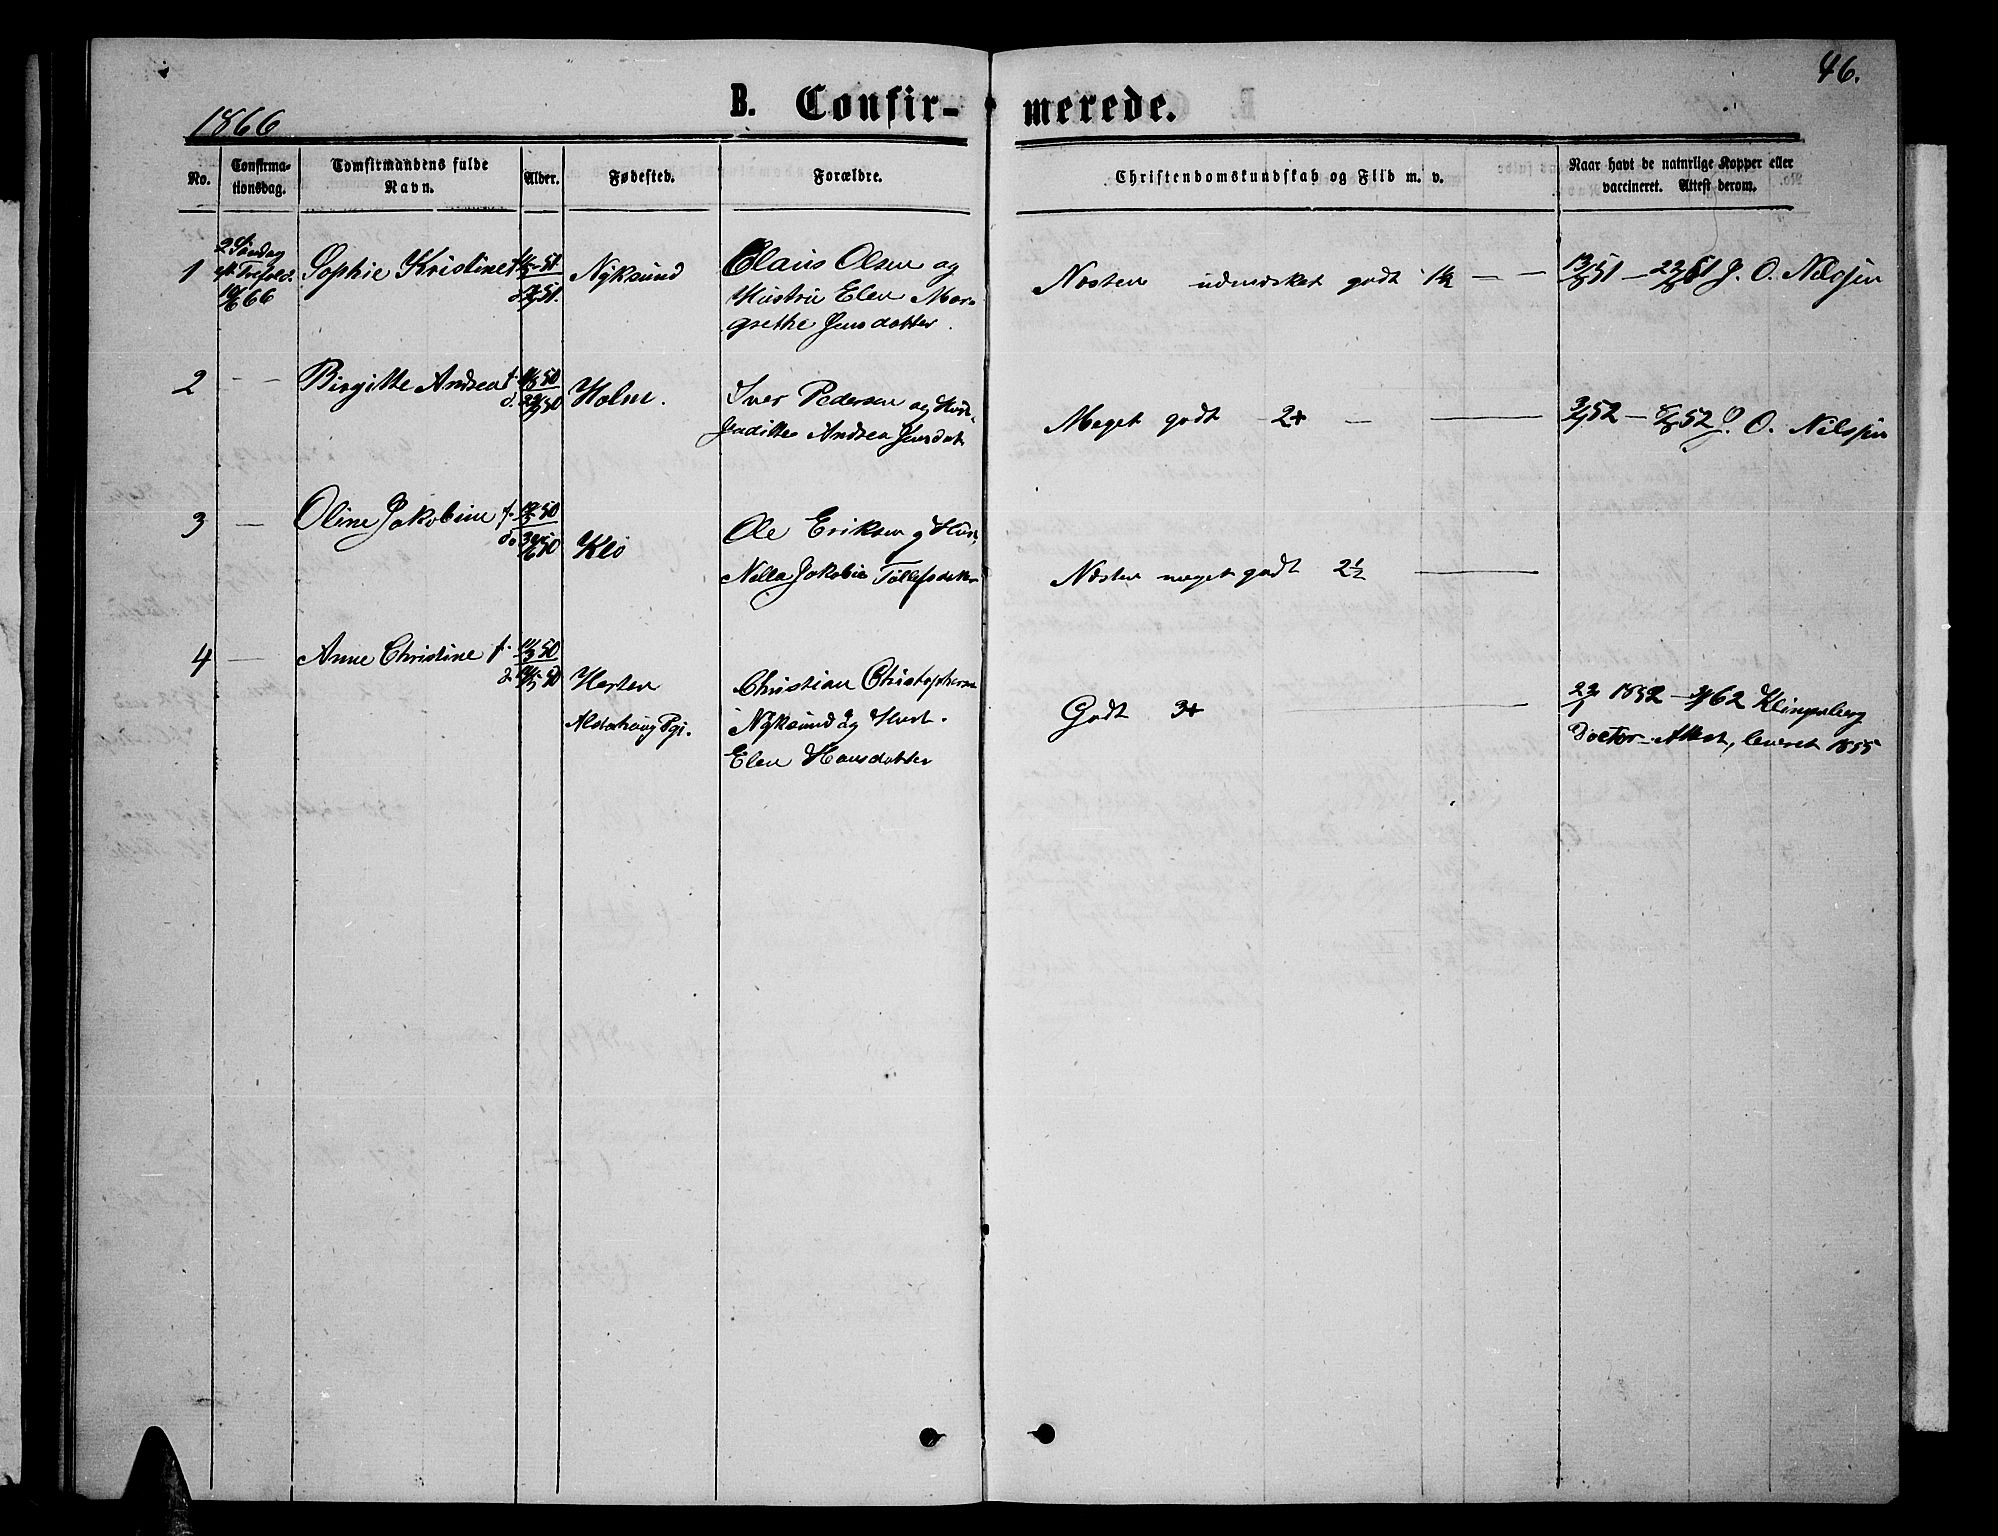 46.
1866
B. Confir- merede.
No.
Confirma-
tionsdag.
Comfirmandens fulde
Navn.
Alder.
Fødested.
Forældre.
Christendomskundskab og Flid m. v.
Naar havt de naturlige Kopper eller
vaccineret. Attest derom.
1
2 Søndag
10/6 66
Sophie Kristine
Nyksund
Claus Olsen og
Hustru Elen Mar-
grethe Jensdatter.
Næsten udmærket godt 1½ — —
J. O. Nilsen
2 — —
Birgitte Andrea f.
d.
Holm.
Iver Pedersen og Hust.
Andrea Jensdat
Meget godt 2+ — —
J. O. Nilsen
3 —
Oline Jakobine f.
Klo
Ole Eriksen og Hust.
Jakobie
Næsten meget godt 2½ —
4 —
Anne Christine f.
Herten
Alstahoug Pgj.
Christian Christophersen
Nyksund og Hust.
Elen Hansdatter
Godt 3+ —
1852 — 62 Klingenberg
Doctor-Attest, leveret 1855